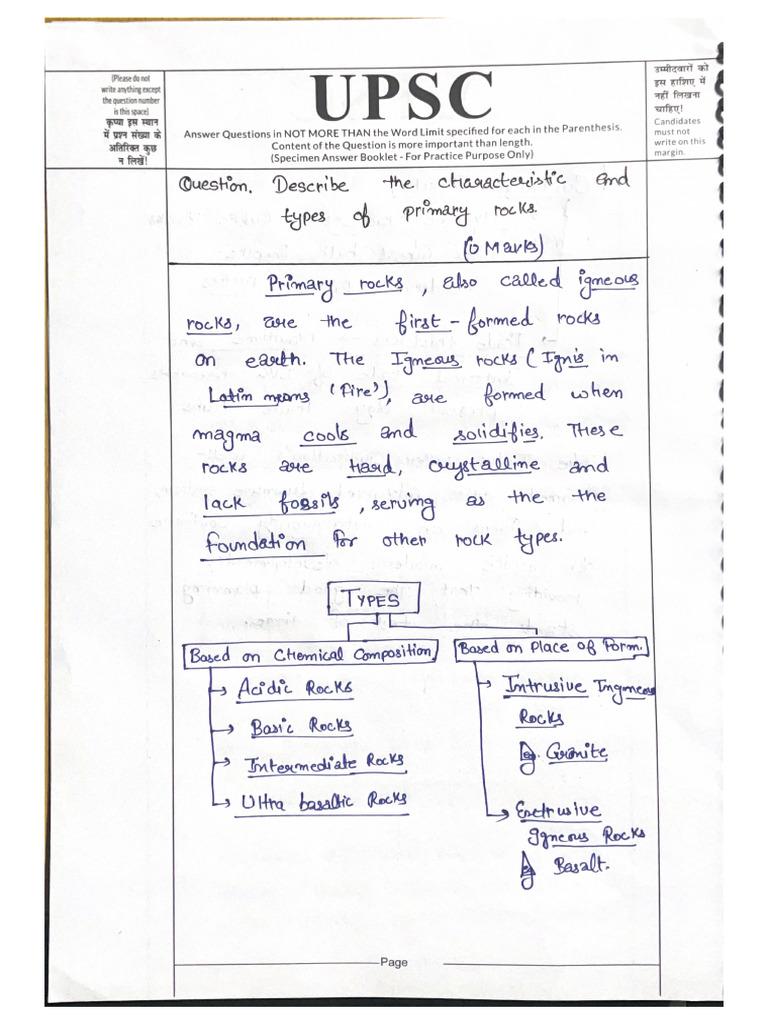 (Please do not
write anything except
the question number
is this space)
कृप्या इस स्थान
में प्रश्न संख्या के
अतिरिक्त कुछ
न लिखें!
UPSC
Answer Questions in NOT MORE THAN the Word Limit specified for each in the Parenthesis.
Content of the Question is more important than length.
(Specimen Answer Booklet - For Practice Purpose Only)
उम्मीदवारों को
इस हाशिए में
नहीं लिखना
चाहिए!
Candidates
must not
write on this
margin.
Question. Describe the characteristic and
types of primary rocks.
Marks)
Primary rocks, also called igneous
rocks, are the first-formed rocks
on earth. The Igneous rocks (Ignis in
Latin means 'fire'), are formed when
magma cools and solidifies. These
rocks are Hard, crystalline and
lack fossils, serving as the the
foundation for other rock types.
TYPES
Based on Chemical Composition
→ Acidic Rocks
→ Basic Rocks
→ Intermediate Rocks
→ Ultra basaltic Rocks
Based on Place of Form.
→ Intrusive Ingneous
Rocks
Eg. Granite
→ Extrusive
Igneous Rocks
Eg Basalt.
Page